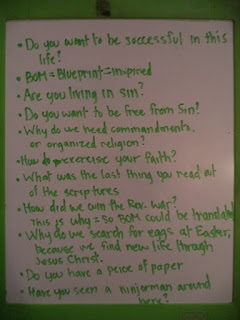 • Do you want to be successful in this
life?
• BOM = Blueprint = inspired
• Are you living in sin?
• Do you want to be free from Sin?
• Why do we need commandments,
or organized religion?
• How do exercise your faith?
• What was the last thing you read out
of the scriptures
• How did we win the Rev. War?
This is why = so BOM could be translated
• Why do we search for eggs at Easter,
because we find new life through
Jesus Christ.
• Do you have a peice of paper
• Have you seen a ninjorman around
here?